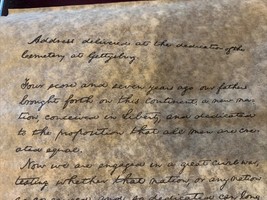 Address delivered at the dedication of the
Cemetery at Gettysburg.
Four score and seven years ago our fathers
brought forth on this continent, a new na-
tion, conceived in Liberty, and dedicated
to the proposition that all men are cre-
ated equal.
Now we are engaged in a great civil war,
testing whether that nation, or any nation
so conceived and so dedicated, can long